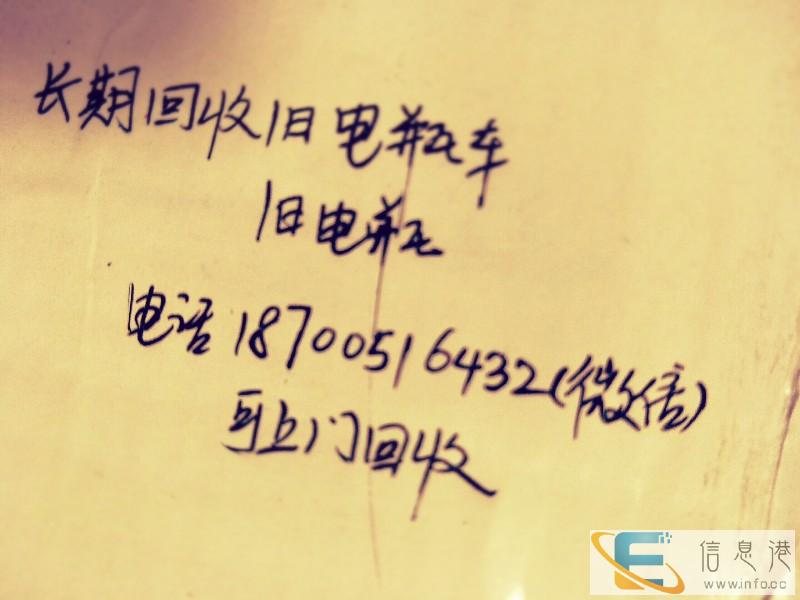 长期回收旧电瓶车
旧电瓶
电话18700516432(微信)
可上门回收
信息港
www.info.cc